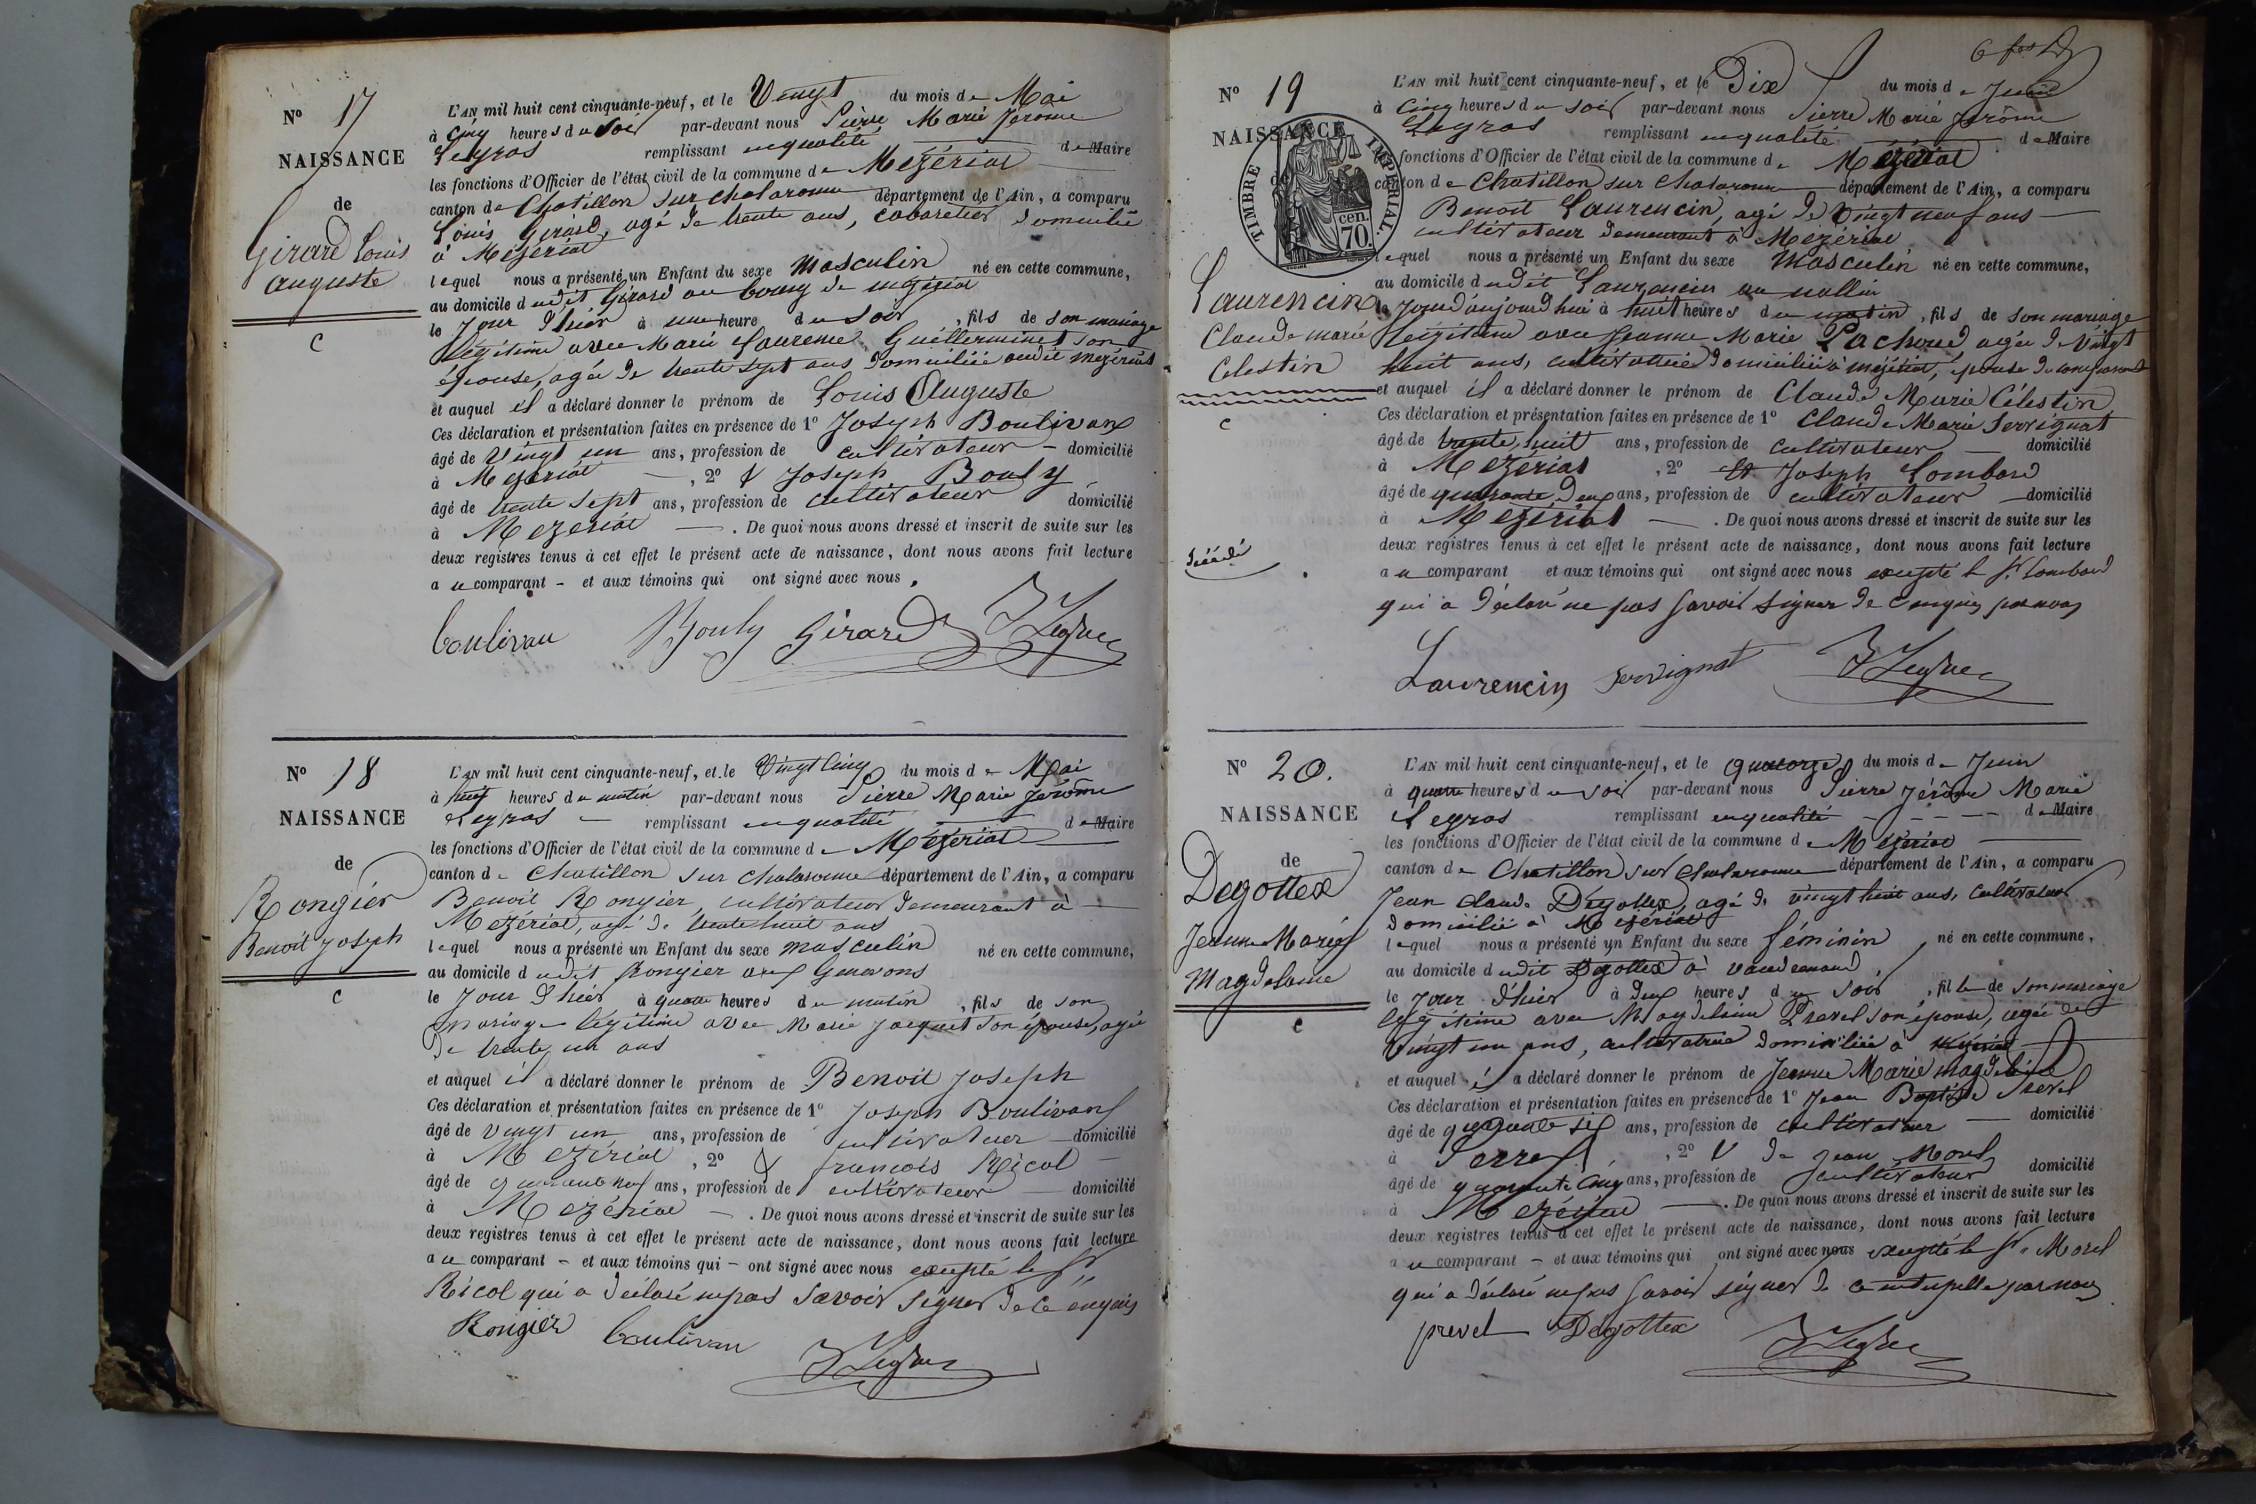 N° 17
NAISSANCE
de
Girard Louis
auguste
C
L'AN mil huit cent cinquante-neuf, et le Vingt du mois de Mai
à cinq heures du soir par-devant nous Pierre Marie Jérôme
Legras remplissant en qualité de Maire
les fonctions d'Officier de l'état civil de la commune de Mézériat
canton de Chatillon sur chalaronne département de l'Ain, a comparu
Louis Girard, agé de trente ans, cabaretier domicilié
à Mézériat
lequel nous a présenté un Enfant du sexe masculin né en cette commune,
au domicile dudit Girard au bourg de mézériat
le jour d'hier à une heure du soir, fils de son mariage
légitime avec Marie Laurence Guillerminet son
épouse, agée de trente sept ans domiciliée audit mezériat
et auquel il a déclaré donner le prénom de Louis Auguste
Ces déclaration et présentation faites en présence de 1° Joseph Boulivan
âgé de vingt un ans, profession de cultivateur domicilié
à Mezériat, 2° & Joseph Bouly
âgé de trente sept ans, profession de cultivateur domicilié
à Mezériat. De quoi nous avons dressé et inscrit de suite sur les
deux registres tenus à cet effet le présent acte de naissance, dont nous avons fait lecture
au comparant - et aux témoins qui ont signé avec nous.
boulivan Bouly Girard
N° 18
NAISSANCE
de
Rongier
Benoit Joseph
C
L'AN mil huit cent cinquante-neuf, et le Vingt cinq du mois de Mai
à heures du matin par-devant nous Pierre Marie Jérôme
Legras remplissant en qualité de Maire
les fonctions d'Officier de l'état civil de la commune de Mézériat
canton de Chatillon sur chalaronne département de l'Ain, a comparu
Benoit Rongier, cultivateur demeurant à
Mezériat, agé de trente huit ans
lequel nous a présenté un Enfant du sexe masculin né en cette commune,
au domicile dudit Rongier aux
le jour d'hier à quatre heures du matin, fils de son
mariage légitime avec Marie Jacquet son épouse, agée
de trente un ans
et auquel il a déclaré donner le prénom de Benoit Joseph
Ces déclaration et présentation faites en présence de 1° Joseph Boulivan
âgé de vingt un ans, profession de cultivateur domicilié
à Mezériat, 2° & françois Ricol
âgé de quarante neuf ans, profession de cultivateur domicilié
à Mezériat. De quoi nous avons dressé et inscrit de suite sur les
deux registres tenus à cet effet le présent acte de naissance, dont nous avons fait lecture
au comparant - et aux témoins qui - ont signé avec nous excepté le Sr
Ricol qui a déclaré ne pas savoir signer de ce enquis
Rongier boulivan
N° 19
NAISSANCE
de
TIMBRE IMPERIAL.
cen.
70.
Laurencin
Claude marie
Celestin
C
décédé
L'AN mil huit cent cinquante-neuf, et le Dix du mois de Juin
à cinq heures du soir par-devant nous Pierre Marie Jérôme
Legras remplissant en qualité de Maire
fonctions d'Officier de l'état civil de la commune de Mézériat
canton de Chatillon sur chalaronne département de l'Ain, a comparu
Benoit Laurencin, agé de vingt neuf ans
cultivateur demeurant à Mezériat
lequel nous a présenté un Enfant du sexe masculin né en cette commune,
au domicile dudit Laurencin au
le jourd'aujourdhui à huit heures du matin, fils de son mariage
légitime avec Jeanne Marie Pachoud agée de vingt
huit ans, cultivatrice domiciliée à mézériat, épouse du comparant
et auquel il a déclaré donner le prénom de Claude Marie Célestin
Ces déclaration et présentation faites en présence de 1° Claude Marie Servignat
âgé de trente huit ans, profession de cultivateur domicilié
à Mezériat, 2° et Joseph Lombard
âgé de quarante deux ans, profession de cultivateur domicilié
à Mezériat. De quoi nous avons dressé et inscrit de suite sur les
deux registres tenus à cet effet le présent acte de naissance, dont nous avons fait lecture
au comparant et aux témoins qui ont signé avec nous excepté le Sr Lombard
qui a déclaré ne pas savoir signer de ce enquis par nous
Laurencin Servignat
N° 20.
NAISSANCE
de
Degottex
Jeanne Marie
Magdelaine
C
L'AN mil huit cent cinquante-neuf, et le quatorze du mois de Juin
à quatre heures du soir par-devant nous Pierre Jérôme Marie
Legras remplissant en qualité de Maire
les fonctions d'Officier de l'état civil de la commune de Mézériat
canton de Chatillon sur chalaronne département de l'Ain, a comparu
Jean claude Dégottex, agé de vingt huit ans, cultivateur
domicilié à Mezériat
lequel nous a présenté un Enfant du sexe féminin né en cette commune,
au domicile dudit Degottex à
le jour d'hier à deux heures du soir, fille de son mariage
légitime avec Magdelaine Prevel son épouse, agée de
vingt un ans, cultivatrice domiciliée à mezériat
et auquel il a déclaré donner le prénom de Jeanne Marie magdelaine
Ces déclaration et présentation faites en présence de 1° Jean Baptiste Prevel
âgé de quarante six ans, profession de cultivateur domicilié
à Perrex, 2° & de Jean Morel
âgé de quarante cinq ans, profession de cultivateur domicilié
à Mezériat. De quoi nous avons dressé et inscrit de suite sur les
deux registres tenus à cet effet le présent acte de naissance, dont nous avons fait lecture
au comparant - et aux témoins qui ont signé avec nous excepté le Sr Morel
qui a déclaré ne pas savoir signer de ce interpellé par nous
prevel Degottex